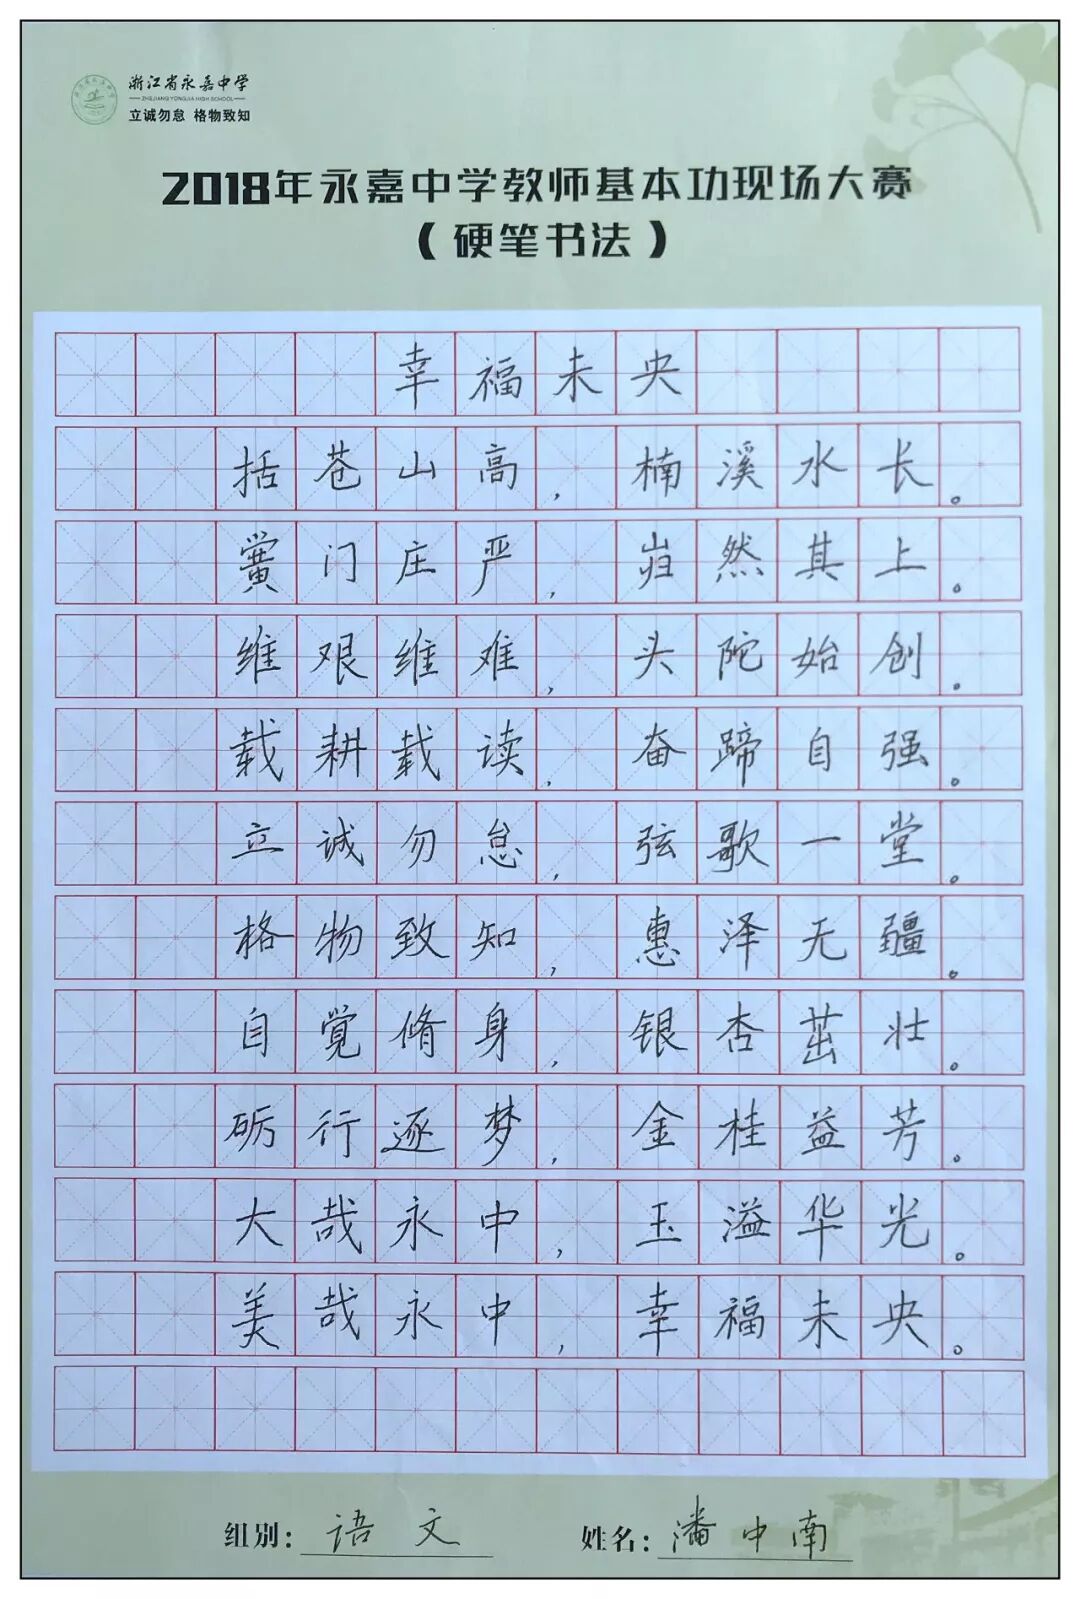 浙江省永嘉中学
ZHEJIANG YONGJIA HIGH SCHOOL
立诚勿怠 格物致知
2018年永嘉中学教师基本功现场大赛
（硬笔书法）
幸福未央
括苍山高，楠溪水长。
黉门庄严，岿然其上。
维艰维难，头陀始创。
载耕载读，奋蹄自强。
立诚勿怠，弦歌一堂。
格物致知，惠泽无疆。
自觉脩身，银杏茁壮。
砺行逐梦，金桂益芳。
大哉永中，玉溢华光。
美哉永中，幸福未央。
组别：语文 姓名：潘中南